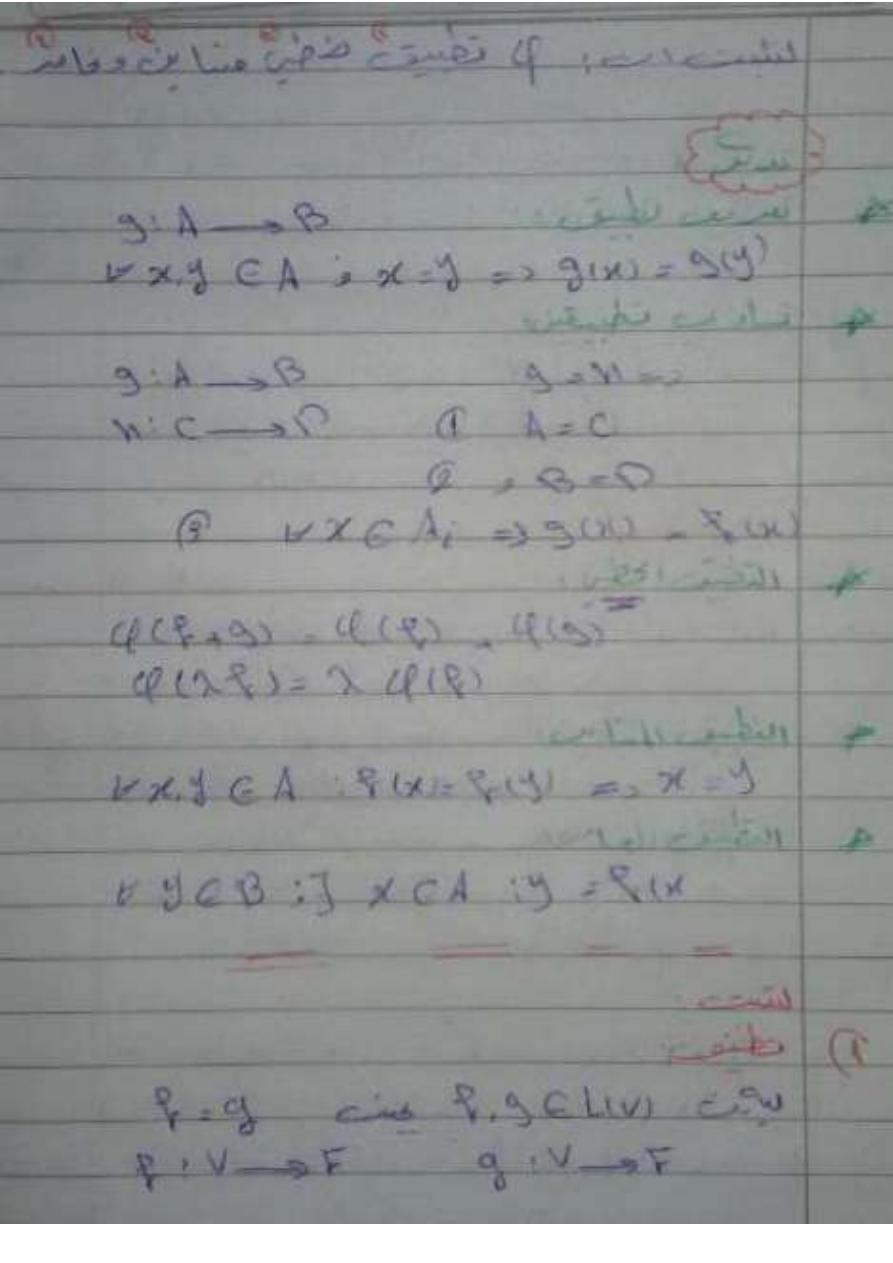 لنثبت ان: φ تطبيق خطي متباين وغامر
① ② ③ ④
تعريف تطبيق:
g: A → B
∀ x,y ∈ A ; x = y => g(x) = g(y)
تساوي تطبيقين:
g: A → B g = h =>
h: C → D ① A = C
② , B = D
③ ∀ x ∈ A ; => g(x) = f(x)
التطبيق الخطي:
φ(f+g) = φ(f) + φ(g)
φ(λf) = λ φ(f)
التطبيق المتباين
∀ x,y ∈ A : f(x) = f(y) => x = y
التطبيق الغامر
∀ y ∈ B : ∃ x ∈ A : y = f(x
لنثبت:
① تطبيق:
f, g ∈ L(V) حيث f = g
f : V → F g : V → F